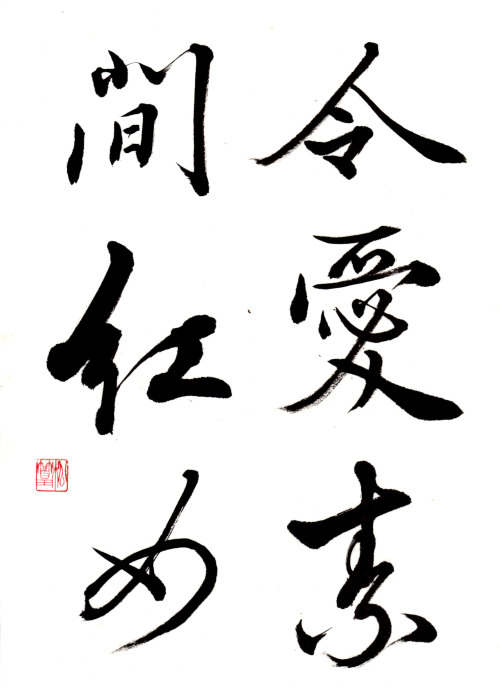 令愛素
間紅